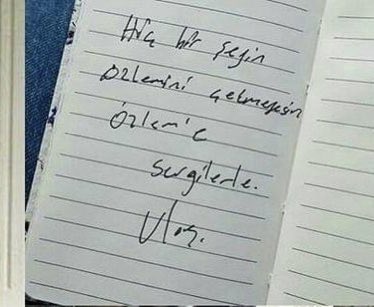 Hiç bir şeyin
özlemini çekmeyesin
Özlem'e
sevgilerle.
Ulaş.